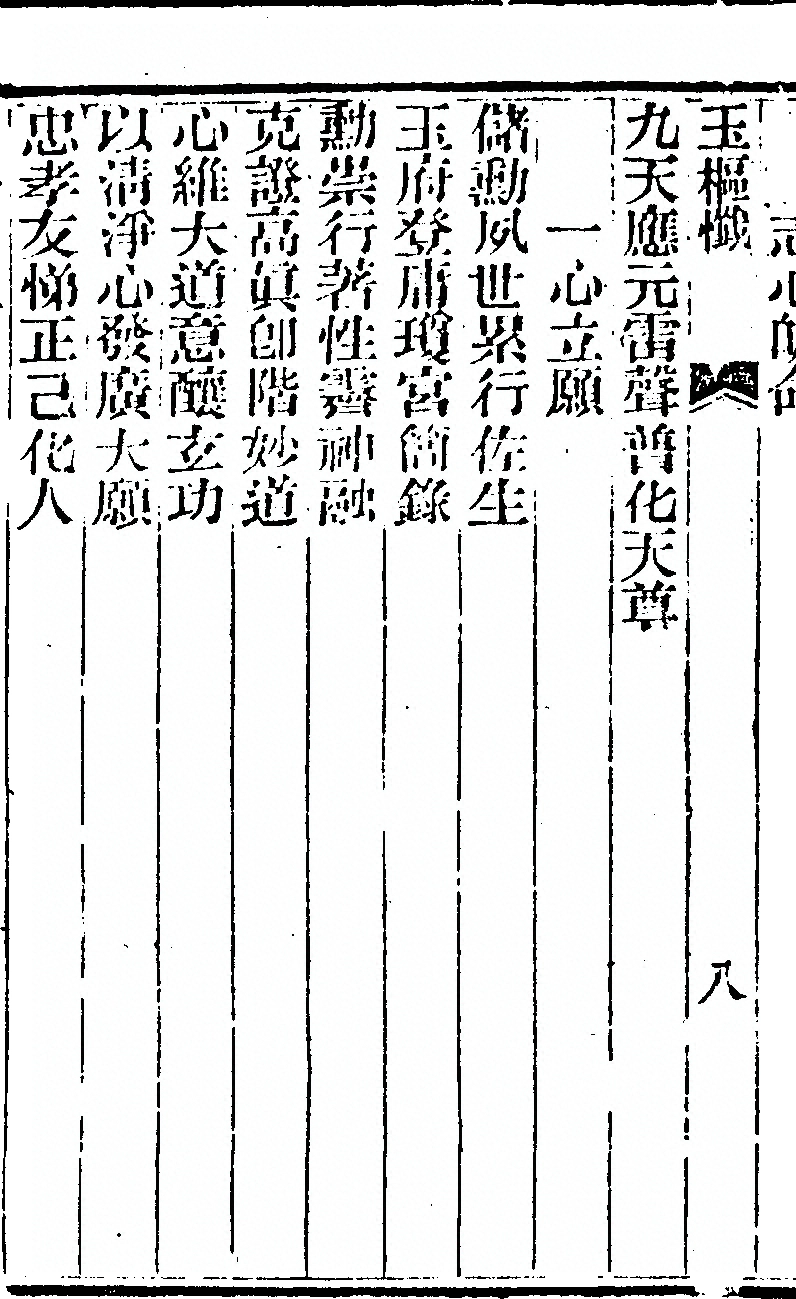 志心皈命
玉樞懺 八
九天應元雷聲普化天尊
一心立願
儲勳夙世累行佐生
玉府登庸瓊宮簡錄
勳崇行著性馨神融
克證高眞卽階妙道
心維大道意釀玄功
以清淨心發廣大願
忠孝友悌正己化人